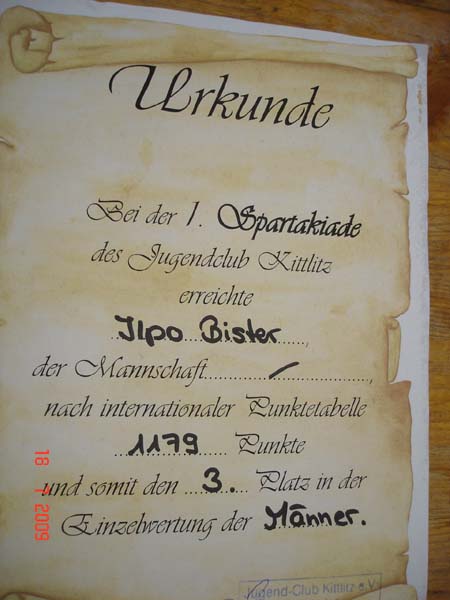 Urkunde
Bei der 1. Spartakiade
des Jugendclub Kittlitz
erreichte
Ilpo Bister,
der Mannschaft / ,
nach internationaler Punktetabelle
1179 Punkte
und somit den 3. Platz in der
Einzelwertung der Männer.
Jugend-Club Kittlitz e.V.
18 7 2009